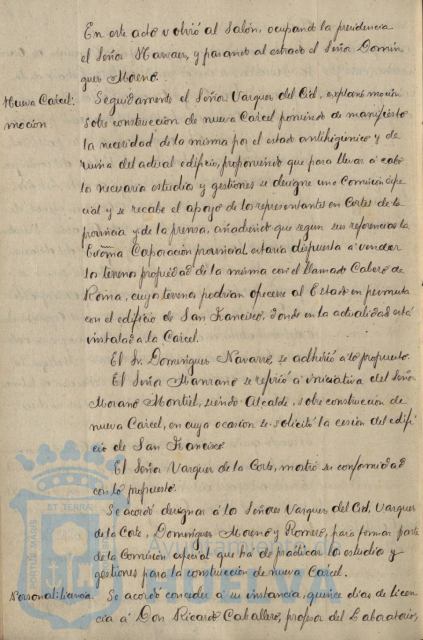 En este acto volvió al Salón, ocupando la presidencia
el Señor Narvaez, y pasando al estrado el Señor Domin
guez Moreno.
Nueva Carcel:
moción
Seguidamente el Señor Vazquez del Cid, explanó moción
sobre construcción de nueva Carcel poniendo de manifiesto
la necesidad de la misma por el estado antihigiénico y de
ruina del actual edificio, proponiendo que para llevar á cabo
los necesarios estudios y gestiones se designe una Comisión espe
cial y se recabe el apoyo de los representantes en Cortes de la
provincia y de la prensa, añadiendo que segun sus referencias la
Excma Corporación provincial estaria dispuesta a vender
los terrenos propiedad de la misma con el llamado Cabezo de
Roma, cuyos terrenos podrian ofrecerse al Estado en permuta
con el edificio de San Francisco, donde en la actualidad está
instalada la Carcel.
El Sr. Dominguez Navarro, se adhirió a lo propuesto.
El Señor Manzano se refirió á iniciativa del Señor
Morano Montiel, siendo Alcalde, sobre construcción de
nueva Carcel, en cuya ocasion se solicitó la cesión del edifi
cio de San Francisco.
El Señor Vazquez de la Corte, mostró su conformidad
con lo propuesto.
Se acordó designar á los Señores Vazquez del Cid, Vazquez
de la Corte, Dominguez Moreno y Romero, para formar parte
de la Comisión especial que há de practicar los estudios y
gestiones para la construcción de nueva Carcel.
Personal: licencia.
Se acordó conceder á su instancia, quince dias de licen
cia á Don Ricardo Caballero, profesor del Laboratorio,